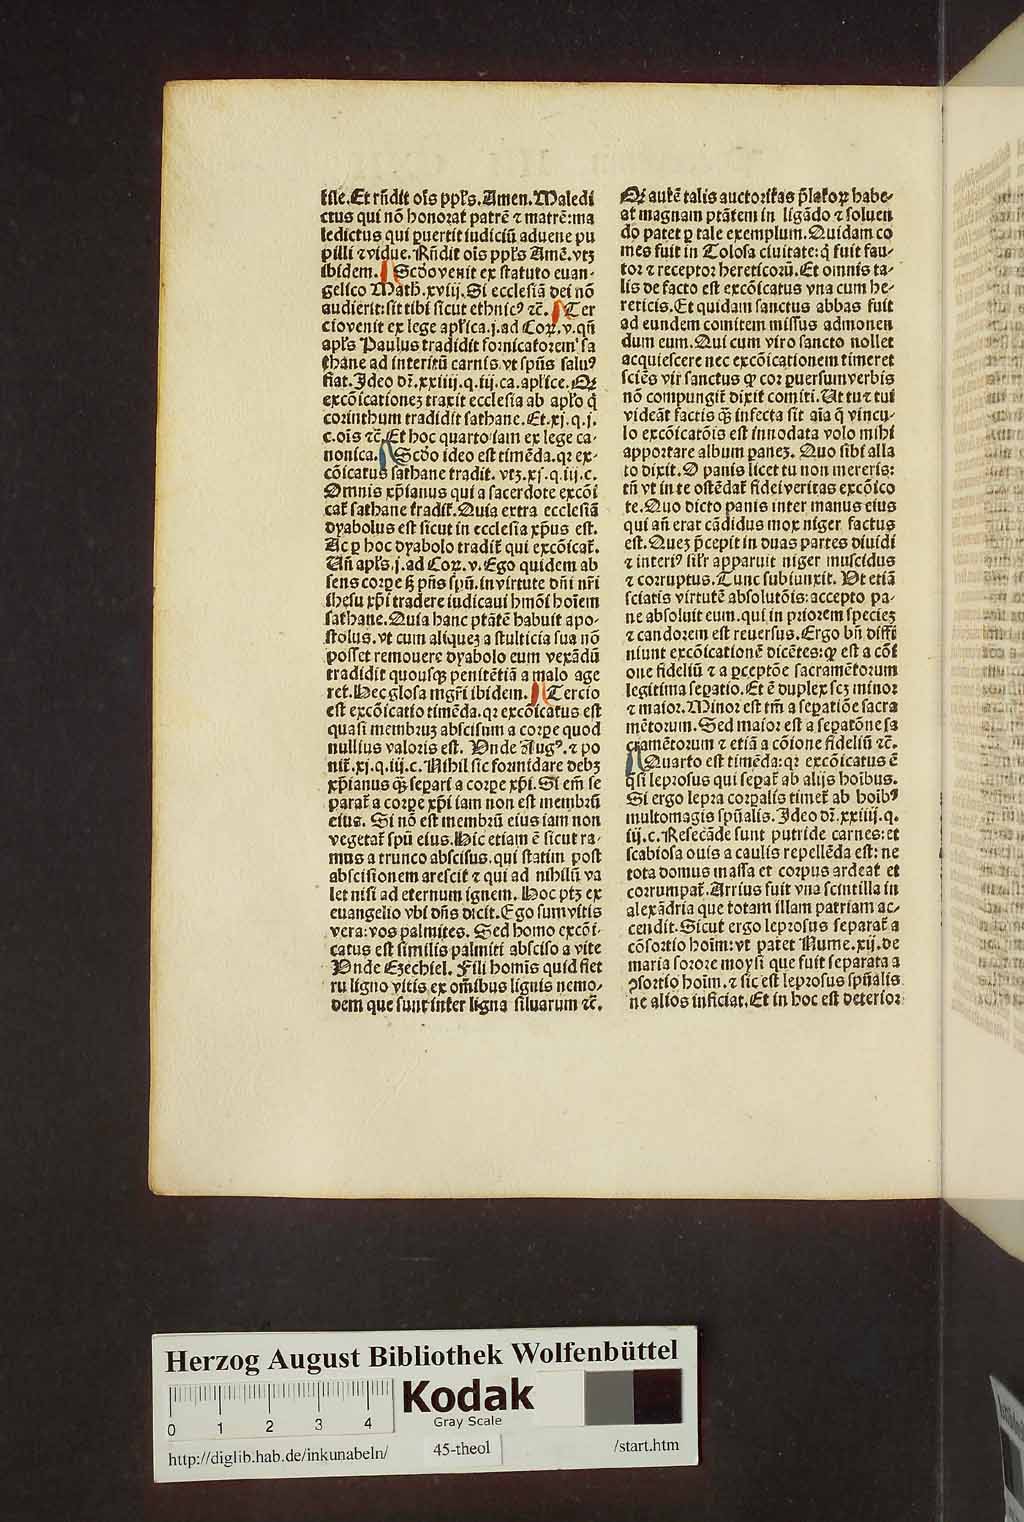 file. Et rñdit oĩs ppl's. Amen. Maledi
ctus qui nõ honorat patrẽ ⁊ matrẽ: ma
ledictus qui ꝑuertit iudiciũ aduene pu
pilli ⁊ vidue. Rñdit oĩs ppl's Amẽ. vtꝫ
ibidem. Scďo venit ex statuto euan-
gelico Math. xviij. Si ecclesiã dei nõ
audierit: sit tibi sicut ethnicꝰ ⁊c̃. Ter
ciovenit ex lege apl'ica. j. ad Coꝝ. v. qñ
apl's Paulus tradidit fornicatorem sa
thane ad interitũ carnis. vt spũs saluꝰ
fiat. Ideo dr̃. xxiiij. q. iij. ca. apl'ice. Qꝛ
excõicationeꝫ traxit ecclesia ab apl'o q̃
corinthum tradidit sathane. Et. xj. q. j.
c. oĩs ⁊c̃. Et hoc quarto iam ex lege ca-
nonica. Scďo ideo est timẽda. qꝛ ex-
cõicatus sathane tradit. vtꝫ. xj. q. iij. c.
Omnis xp̃ianus qui a sacerdote excõi
cat̃ sathane tradit̃. Quia extra ecclesiã
dyabolus est sicut in ecclesia xp̃us est.
Ac ꝑ hoc dyabolo tradit̃ qui excõicat̃.
Uñ apl's. j. ad Coꝝ. v. Ego quidem ab
sens corꝑe sꝫ pñs spũ. in virtute dñi nr̃i
ihesu xp̃i tradere iudicaui hmõi hoĩem
sathane. Quia hanc ptãtẽ habuit apo-
stolus. vt cum aliqueꝫ a stulticia sua nõ
posset remouere dyabolo eum vexãdũ
tradidit quousqꝫ penitẽtiã a malo age
ret. Hec glosa mgr̃i ibidem. Tercio
est excõicatio timẽda. qꝛ excõicatus est
quasi membruꝫ abscisum a corꝑe quod
nullius valoris est. Vnde Augꝰ. ⁊ po
nit̃. xj. q. iij. c. Nihil sic formidare debꝫ
xp̃ianus qꝫ seꝑari a corꝑe xp̃i. Si em̃ se
parat̃ a corꝑe xp̃i iam non est membrũ
eius. Si nõ est membrũ eius iam non
vegetat̃ spũ eius. Hic etiam ẽ sicut ra-
mus a trunco abscisus. qui statim post
abscisionem arescit ⁊ qui ad nihilũ va
let nisi ad eternum ignem. Hoc ptꝫ ex
euangelio vbi dñs dicit. Ego sum vitis
vera: vos palmites. Sed homo excõi-
catus est similis palmiti absciso a vite
Vnde Ezechiel. Fili hominis quid fiet
ru ligno vitis ex om̃ibus lignis nemo-
dem que sunt inter ligna siluarum ⁊c̃.
Qꝛ autẽ talis auctoritas p̃latoꝝ habe-
at magnam ptãtem in ligãdo ⁊ soluen
do patet ꝑ tale exemplum. Quidam co
mes fuit in Tolosa ciuitate: q̃ fuit fau-
tor ⁊ receptor hereticorũ. Et omnis ta-
lis de facto est excõicatus vna cum he-
reticis. Et quidam sanctus abbas fuit
ad eundem comitem missus admonen
dum eum. Qui cum viro sancto nollet
acquiescere nec excõicationem timeret
sciẽs vir sanctus ꝙ cor ꝑuersum verbis
nõ compungit̃ dixit comiti. Ut tu ⁊ tui
videãt factis qꝫ infecta sit aĩa q̃ vincu-
lo excõicatõis est innodata volo mihi
apportare album paneꝫ. Quo sibi alla
to dixit. O panis licet tu non mereris:
tñ vt in te ostẽdat̃ fidei veritas excõico
te. Quo dicto panis inter manus eius
qui añ erat cãdidus mox niger factus
est. Queꝫ p̃cepit in duas partes diuidi
⁊ interiꝰ sil'r apparuit niger muscidus
⁊ corruptus. Tunc subiunxit. Vt etiã
sciatis virtutẽ absolutõis: accepto pa-
ne absoluit eum. qui in priorem specieꝫ
⁊ candorem est reuersus. Ergo bñ diffi
niunt excõicationẽ dicẽtes: ꝙ est a cõi
one fideliũ ⁊ a ꝑceptõe sacramẽtorum
legitima seꝑatio. Et ẽ duplex scꝫ minor
⁊ maior. Minor est tm̃ a seꝑatiõe sacra
mẽtorum. Sed maior est a seꝑatõne sa
cramẽtorum ⁊ etiã a cõione fideliũ ⁊c̃.
Quarto est timẽda: qꝛ excõicatus ẽ
q̃si leprosus qui seꝑat̃ ab alijs hoĩbus.
Si ergo lepra corꝑalis timet̃ ab hoĩbꝰ
multomagis spũalis. Ideo dr̃. xxiiij. q.
iij. c. Resecãde sunt putride carnes: et
scabiosa ouis a caulis repellẽda est: ne
tota domus massa et corpus ardeat et
corrumpat̃. Arrius fuit vna scintilla in
alexãdria que totam illam patriam ac-
cendit. Sicut ergo leprosus separat̃ a
cõsortio hoĩm: vt patet Nume. xij. de
maria sorore moysi que fuit separata a
ꝯsortio hoĩm. ⁊ sic est leprosus spũalis
ne alios inficiat. Et in hoc est deterior
Herzog August Bibliothek Wolfenbüttel
0 1 2 3 4
Kodak
Gray Scale
http://diglib.hab.de/inkunabeln/ 45-theol /start.htm